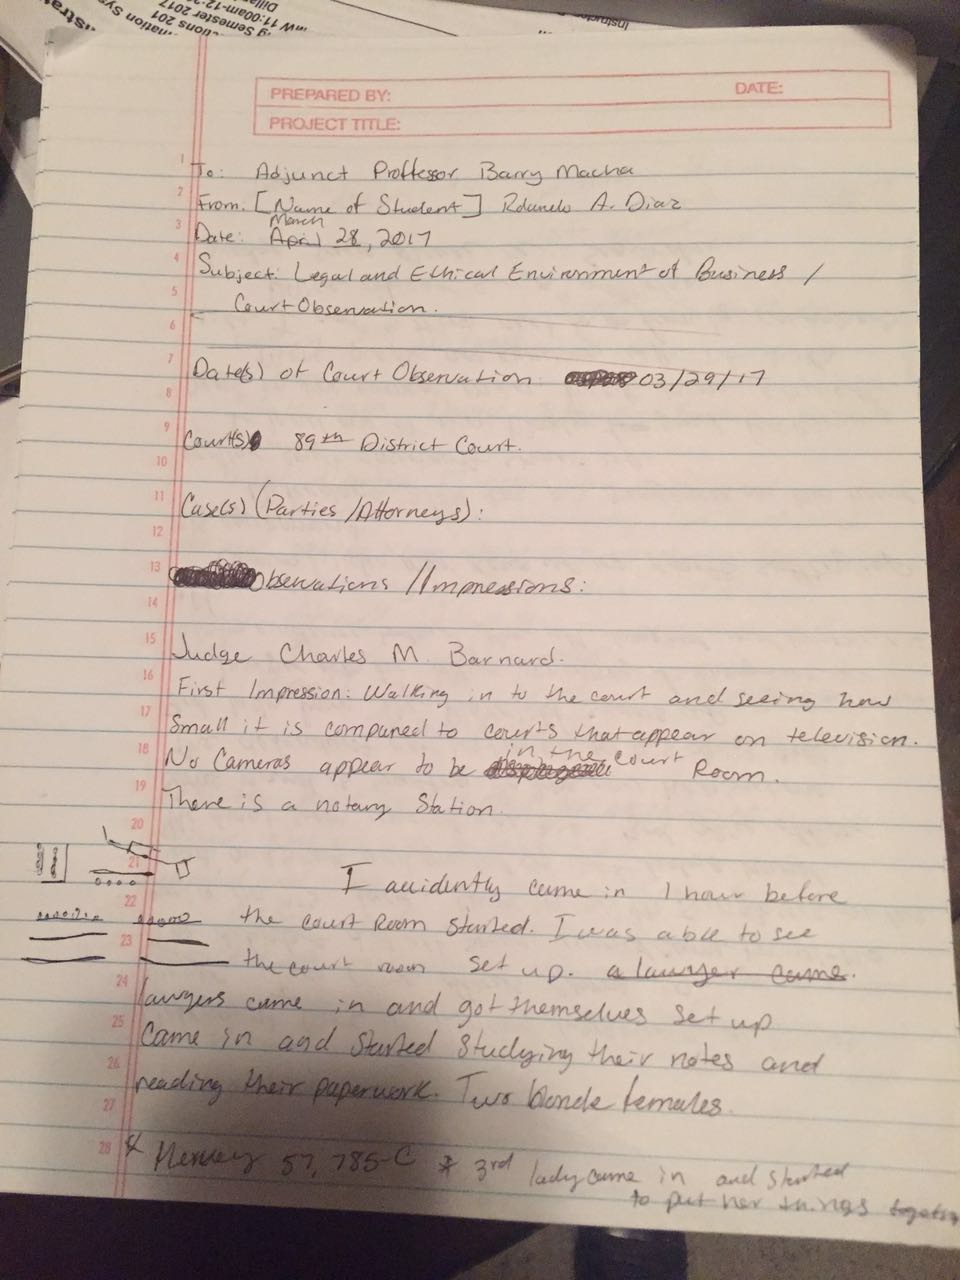 Instructor
MW 11:00am-12:20
g Semester 2017
ctions 201
mation Sys
PREPARED BY:
DATE:
PROJECT TITLE:
1 To: Adjunct Proffessor Barry Macha
2 From: [Name of Student] A. Diaz
March
3 Date: April 28, 2017
4 Subject: Legal and Ethical Environment of Business /
5 Court Observation.
6
7 Date(s) of Court Observation 03/29/17
8
9 Court(s) 89th District Court.
10
11 Case(s) (Parties /Attorneys):
12
13 Observations /Impressions:
14
15 Judge Charles M. Barnard.
16 First Impression: Walking in to the court and seeing how
17 Small it is compared to courts that appear on television.
18 No Cameras appear to be in the court Room.
19 There is a notary Station.
20
21 I accidently came in 1 hour before
22 the court Room started. I was able to see
23 the court room set up. a lawyer came.
24 lawyers came in and got themselves set up
25 Came in and started studying their notes and
26 reading their paperwork. Two blonde females.
27
28 * 57,785-C * 3rd lady came in and started
to put her things together